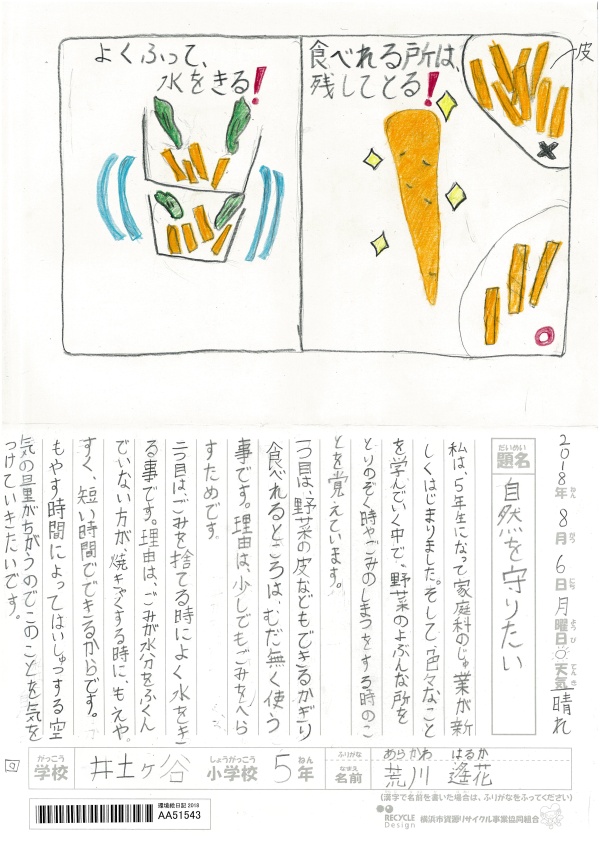 よくふって、
水をきる!
食べれる所は、
残してとる!
皮
2018年 8月 6日 月曜日 天気 晴れ
ねん がつ にち ようび てんき
だいめい
題名
自然を守りたい
私は、5年生になって家庭科のじゅ業が新
しくはじまりました。そして色々なこと
を学んでいく中で、野菜のよぶんな所を
とりのぞく時やごみのしまつをする時のこ
とを覚えています。
一つ目は、野菜の皮などもできるかぎり
食べれるところは、むだ無く使う
事です。理由は、少しでもごみをへら
すためです。
二つ目はごみを捨てる時によく水をき
る事です。理由は、ごみが水分をふくん
でいない方が、焼きゃくする時に、もえや
すく、短い時間でできるからです。
もやす時間によってはいしゅつする空
気の量がちがうのでこのことを気を
つけていきたいです。
がっこう
学校
井土ヶ谷
しょうがっこう
小学校
5年
ねん
ふりがな
あらかわ はるか
なまえ
名前
荒川 遥花
(漢字で名前を書いた場合は、ふりがなをふってください)
環境絵日記 2018
AA51543
RECYCLE
Design
横浜市資源リサイクル事業協同組合